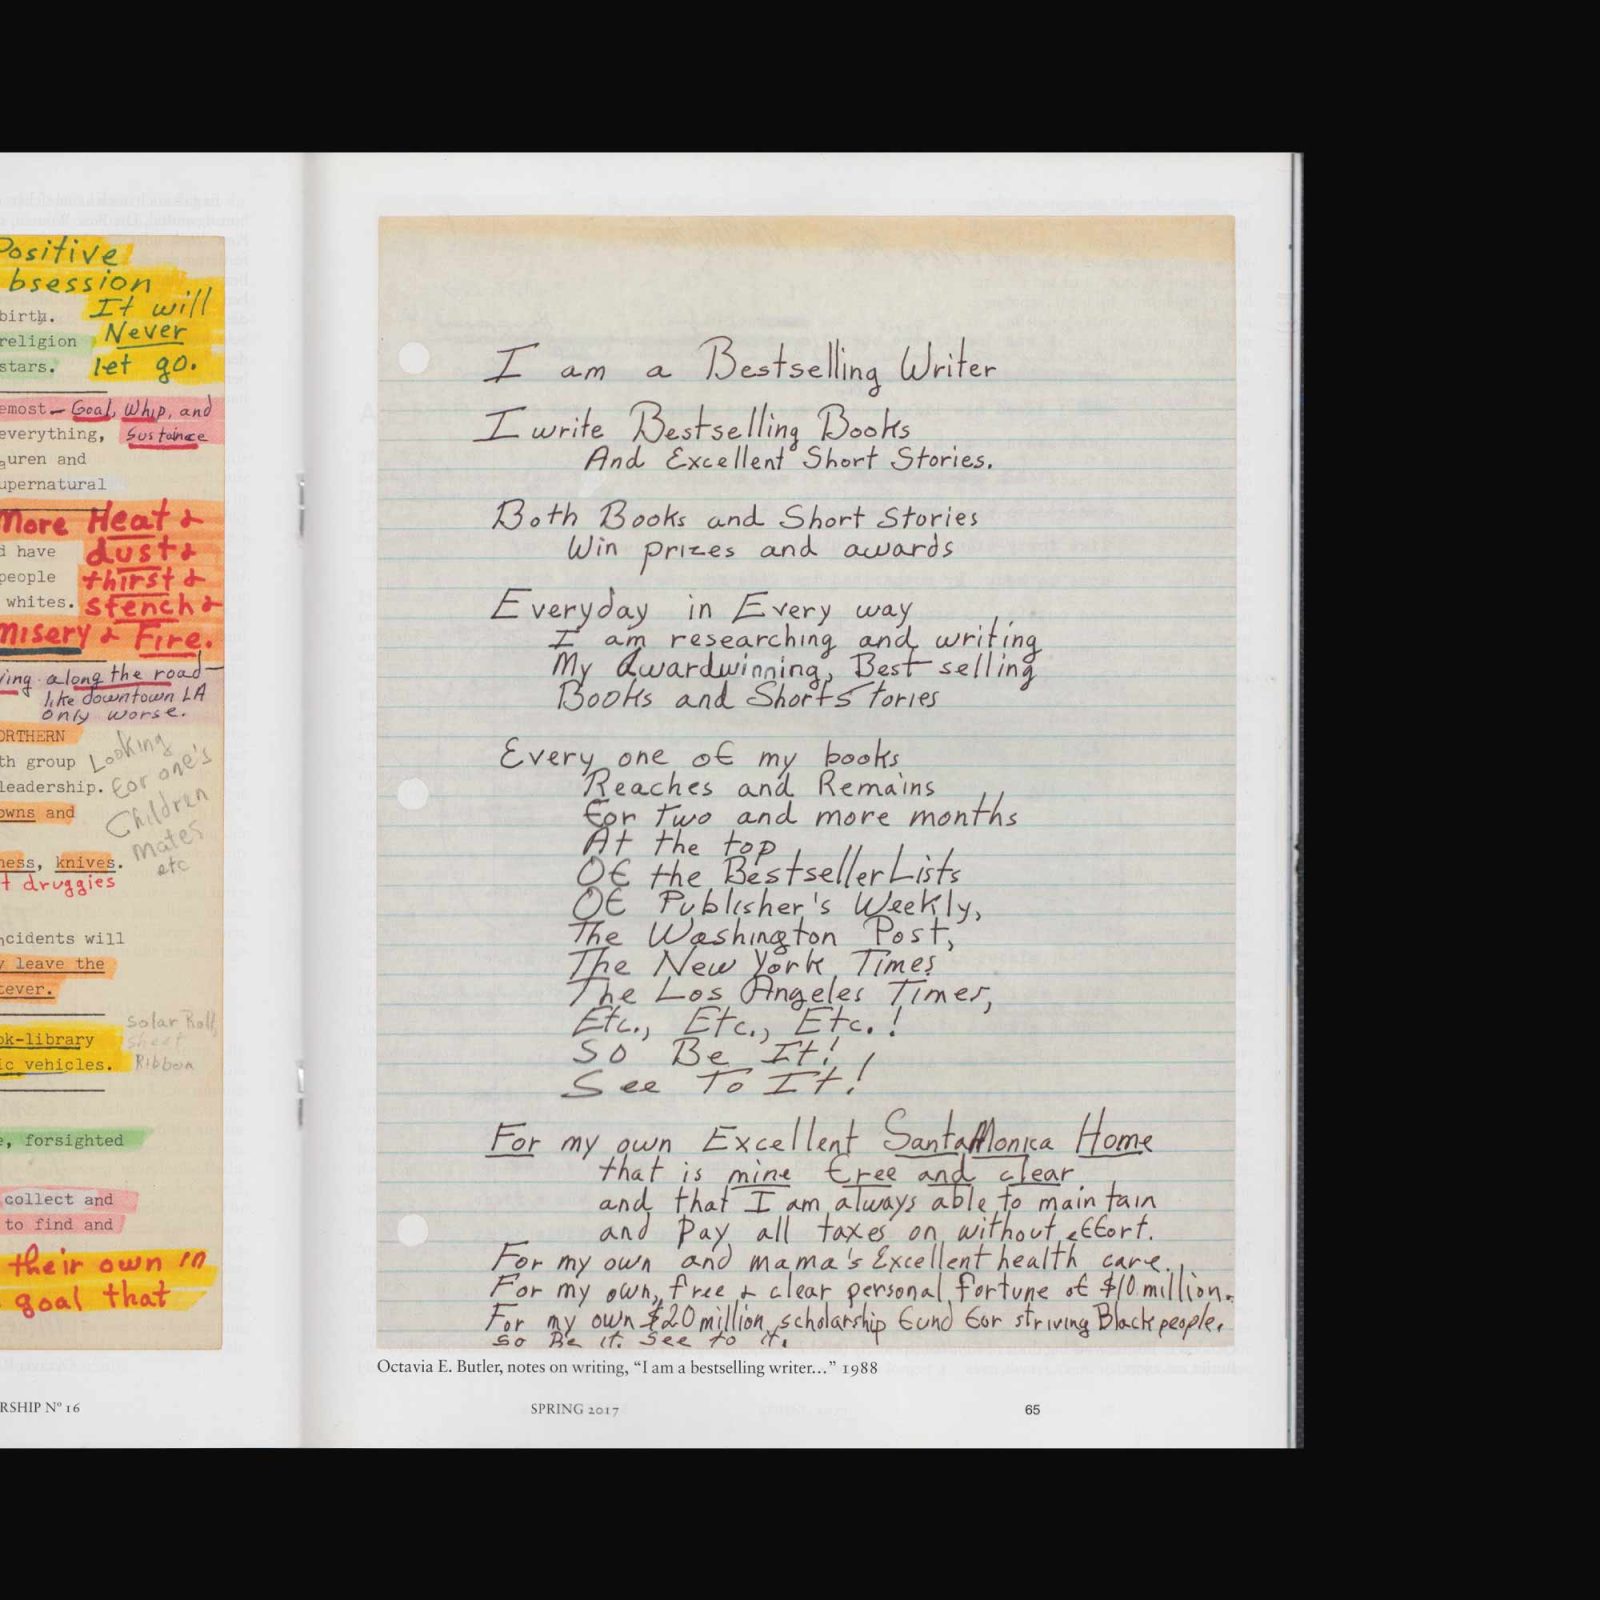 Positive
bsession
birth. It will
religion Never
stars. let go.
emost — Goal, Whip, and
everything, Sustaince
auren and
upernatural
More Heat &
d have dust &
people thirst &
whites. stench &
Misery & Fire.
ving along the road —
like downtown LA
only worse.
ORTHERN
th group Looking
leadership. For one's
owns and Children
Mates
etc
ness, knives.
t druggies
ncidents will
y leave the
tever.
Solar Roll
ok-library sheet
ic vehicles. Ribbon
e, forsighted
collect and
to find and
their own in
goal that
RSHIP Nº 16
I am a Bestselling Writer
I write Bestselling Books
And Excellent Short Stories.
Both Books and Short Stories
Win prizes and awards
Everyday in Every way
I am researching and writing
My Awardwinning, Best selling
Books and Short Stories
Every one of my books
Reaches and Remains
For Two and more months
At the top
Of the Bestseller Lists
Of Publisher's Weekly,
The Washington Post,
The New York Times
The Los Angeles Times,
Etc., Etc., Etc.!
So Be It!
See To It!
For my own Excellent Santa Monica Home
that is mine free and clear
and that I am always able to maintain
and Pay all taxes on without effort.
For my own and mama's Excellent health care.
For my own, free & clear personal fortune of $10 million.
For my own $20 million scholarship fund for striving Black people.
So Be it. See to it.
Octavia E. Butler, notes on writing, “I am a bestselling writer…” 1988
SPRING 2017 65